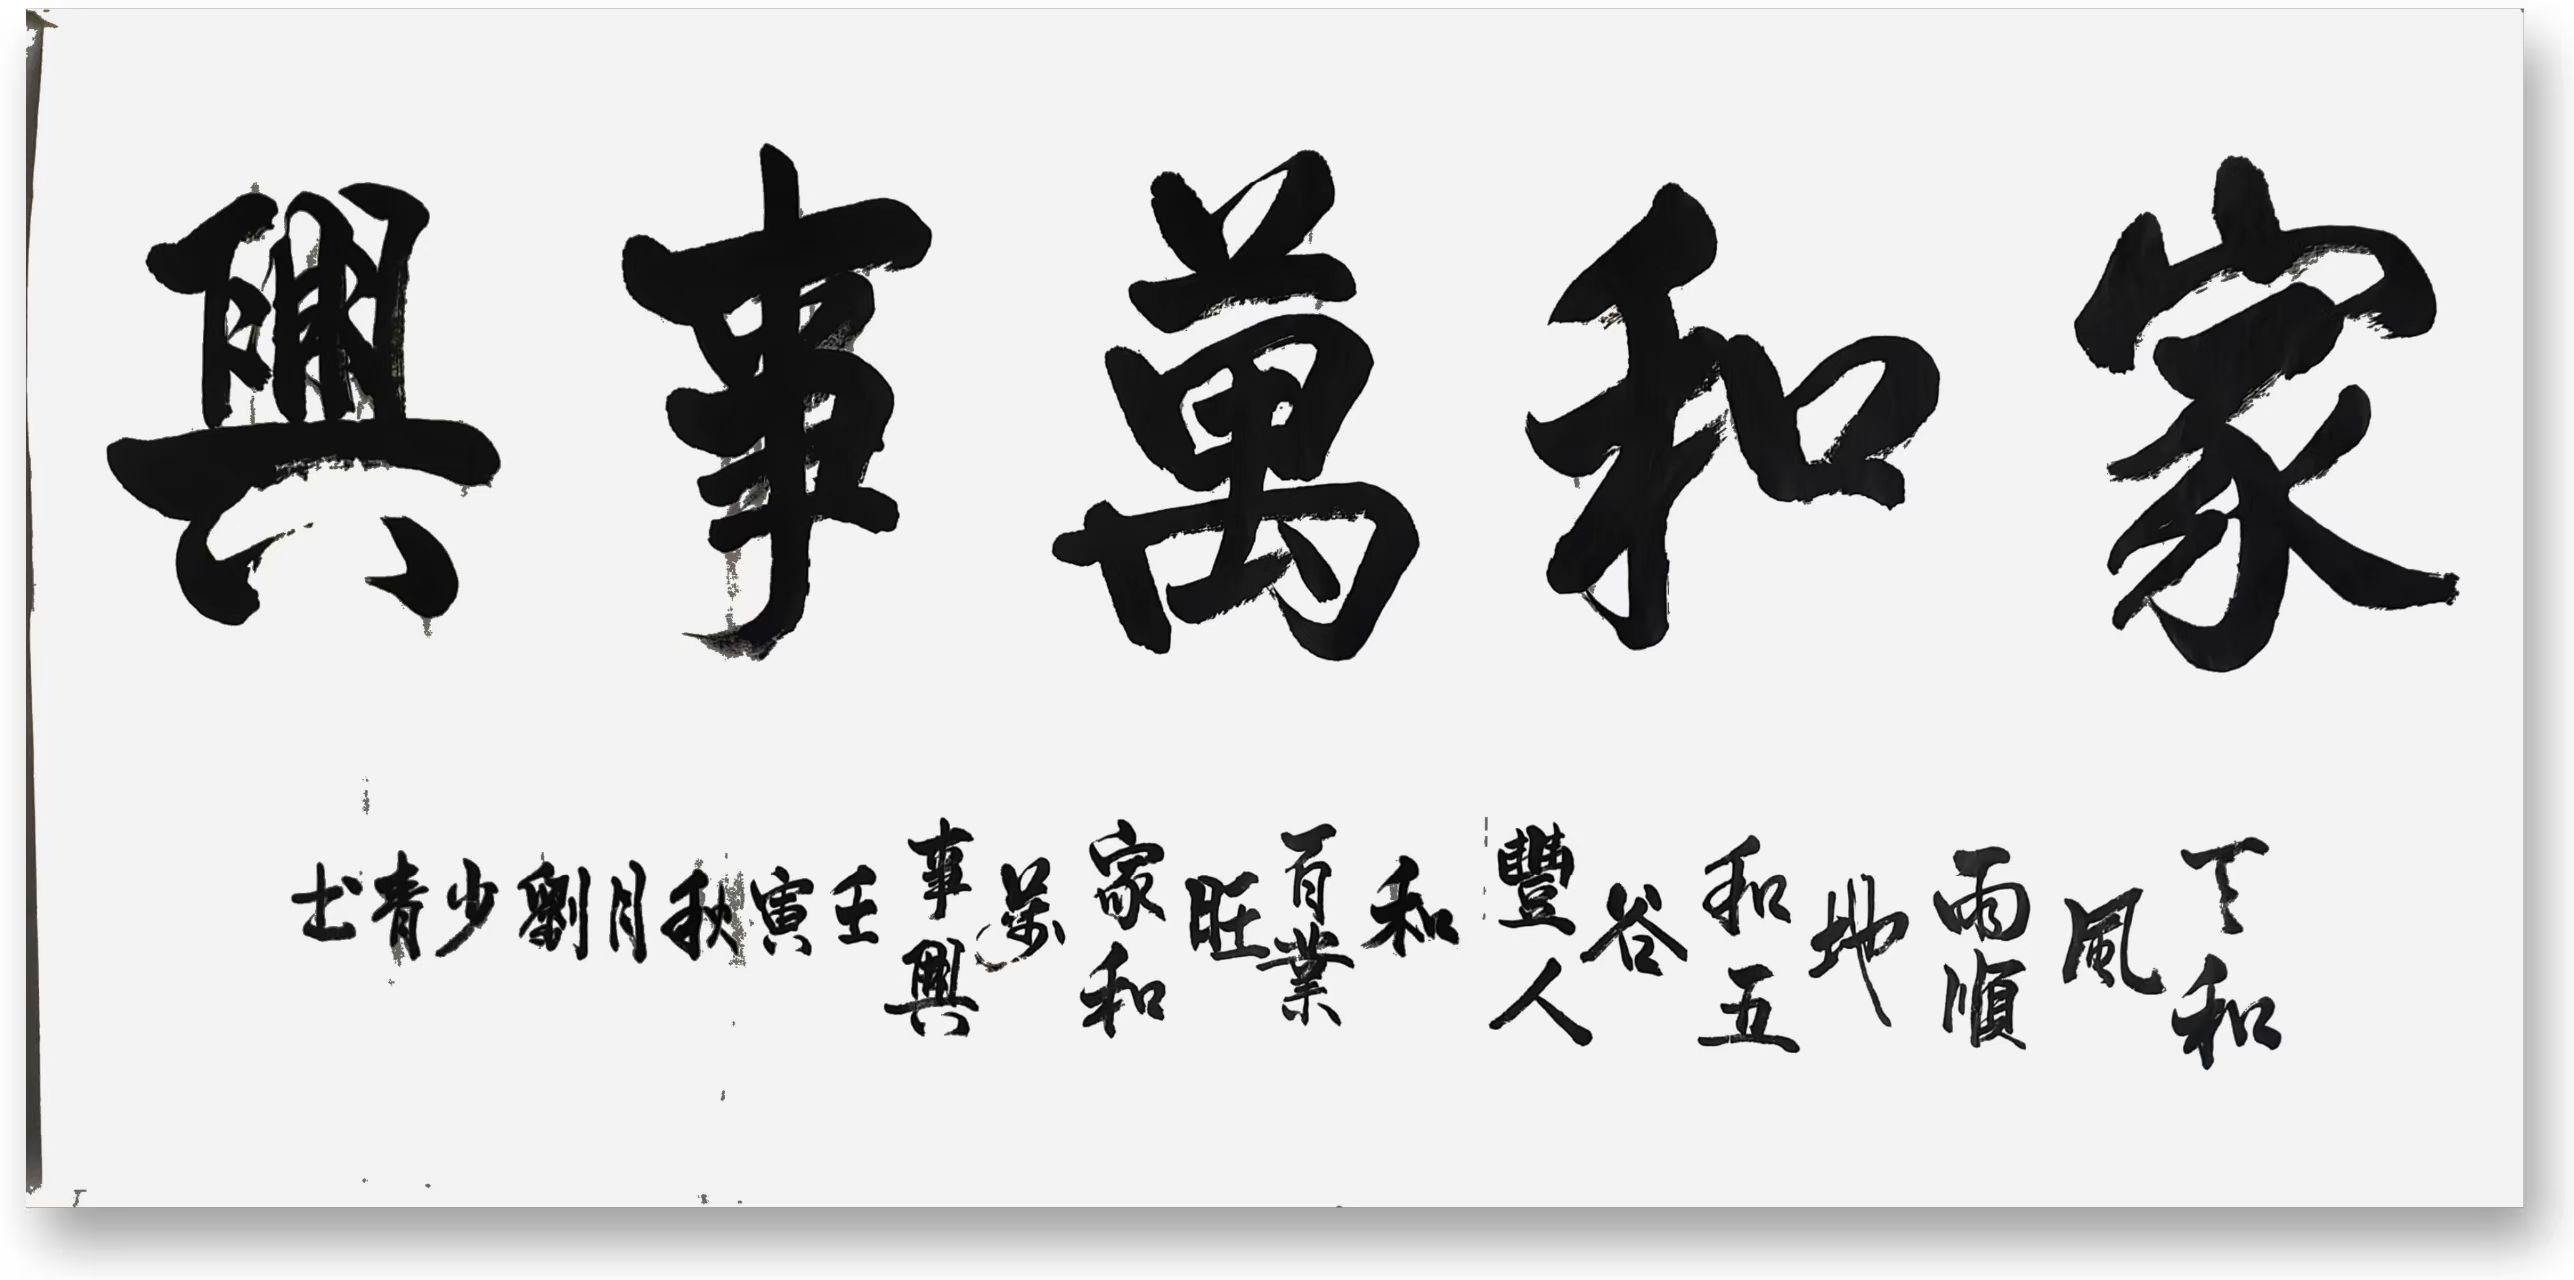 家和萬事興
天和風雨順地和五谷豐人和百業旺家和萬事興壬寅秋月劉少青书